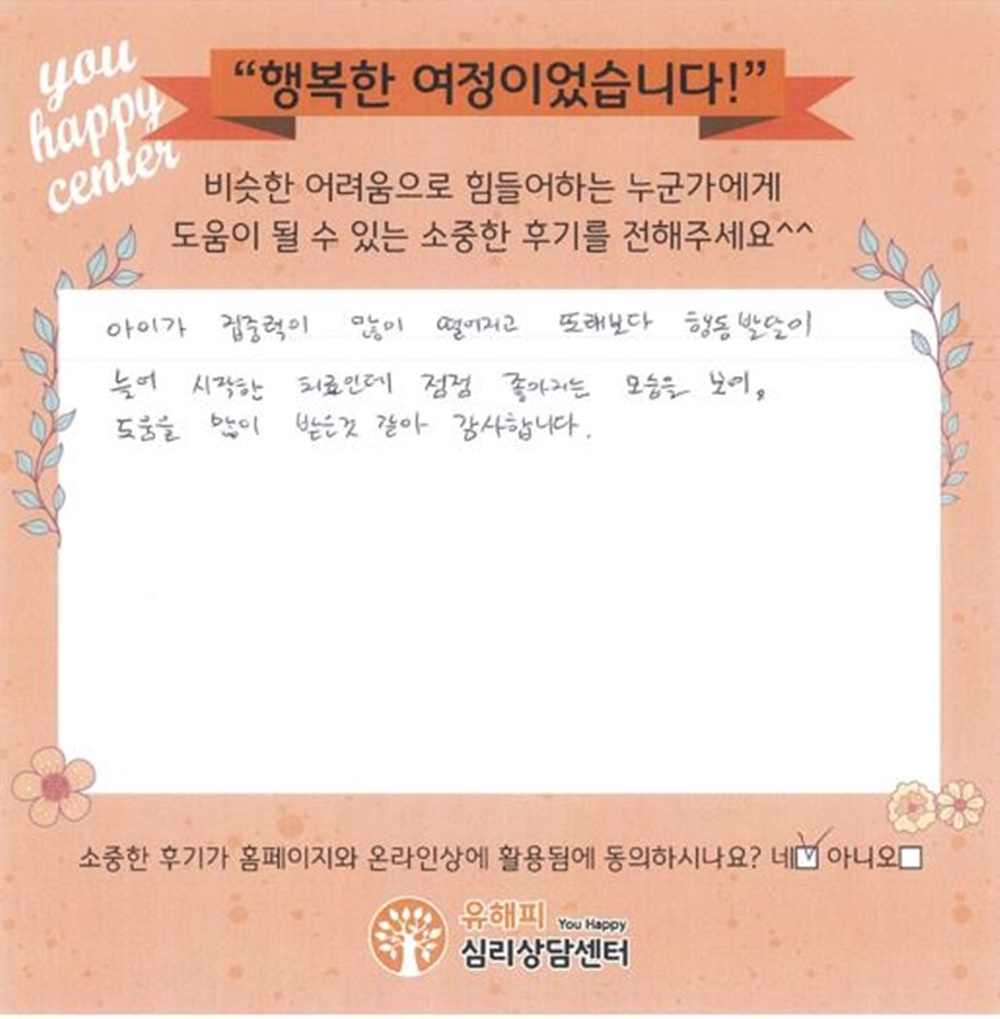 you
happy
center
“행복한 여정이었습니다!”
비슷한 어려움으로 힘들어하는 누군가에게
도움이 될 수 있는 소중한 후기를 전해주세요^^
아이가 집중력이 많이 떨어지고 또래보다 행동발달이
늦어 시작한 치료인데 점점 좋아지는 모습을 보여,
도움을 많이 받은것 같아 감사합니다.
소중한 후기가 홈페이지와 온라인상에 활용됨에 동의하시나요? 네 아니오
유해피 You Happy
심리상담센터